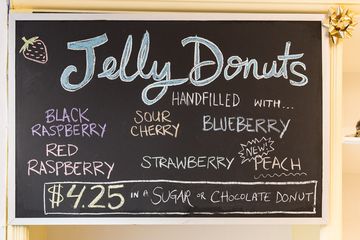 Jelly Donuts
HANDFILLED WITH...
BLACK RASPBERRY
SOUR CHERRY
BLUEBERRY
RED RASPBERRY
STRAWBERRY
NEW!
PEACH
$4.25 IN A SUGAR OR CHOCOLATE DONUT